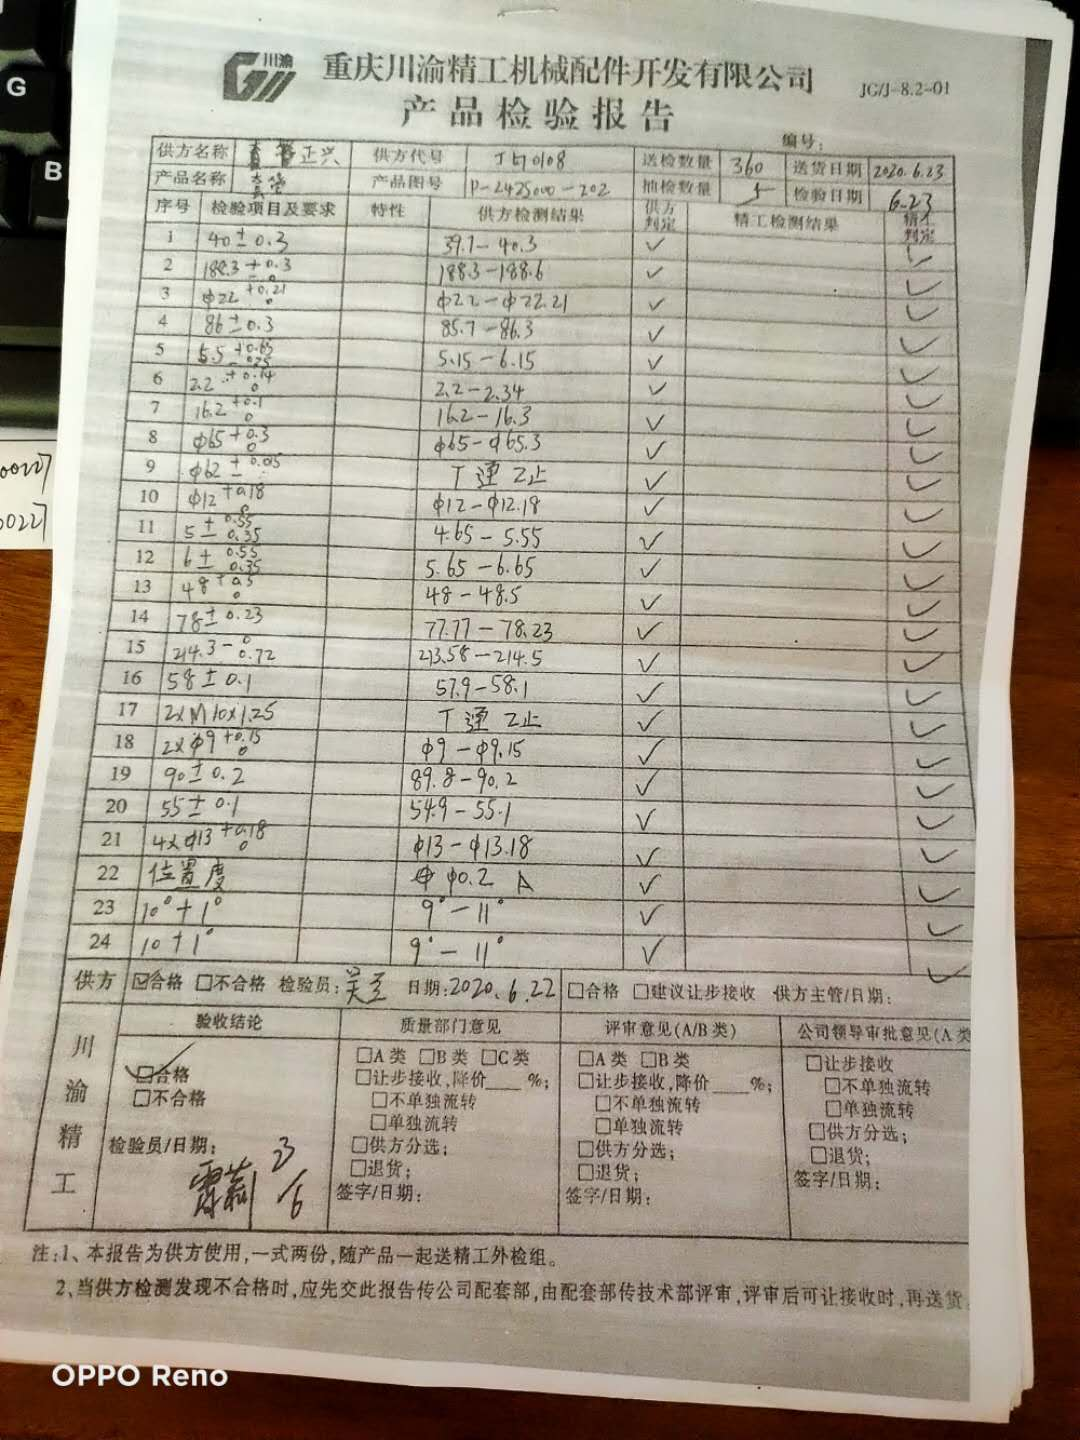 G
B
00227
00227
川渝
重庆川渝精工机械配件开发有限公司
JG/J-8.2-01
产品检验报告
编号:
供方名称 正兴 供方代号 送检数量 360 送货日期 2020.6.23
产品名称 套管 产品图号 P-2425000-202 抽检数量 5 检验日期 6.23
序号 检验项目及要求 特性 供方检测结果 供方判定 精工检测结果 精工判定
1 40±0.3 39.7-40.3 ✓ ✓
2 188.3 +0.3 0 188.3-188.6 ✓ ✓
3 φ22 +0.21 0 φ22-φ22.21 ✓ ✓
4 86±0.3 85.7-86.3 ✓ ✓
5 5.5 +0.65 5.15-6.15 ✓ ✓
6 2.2 +0.14 0 2.2-2.34 ✓ ✓
7 16.2 +0.1 0 16.2-16.3 ✓ ✓
8 φ65 +0.3 0 φ65-φ65.3 ✓ ✓
9 φ62 T通 Z止 ✓ ✓
10 φ12 +0.18 0 φ12-φ12.18 ✓ ✓
11 5 ± 0.55 0.35 4.65-5.55 ✓ ✓
12 6 ± 0.55 0.35 5.65-6.65 ✓ ✓
13 48 +0.5 0 48-48.5 ✓ ✓
14 78±0.23 77.77-78.23 ✓ ✓
15 214.3 0 -0.72 213.58-214.5 ✓ ✓
16 58±0.1 57.9-58.1 ✓ ✓
17 2×M10×1.25 T通 Z止 ✓ ✓
18 2×φ9 +0.15 0 φ9-φ9.15 ✓ ✓
19 90±0.2 89.8-90.2 ✓ ✓
20 55±0.1 54.9-55.1 ✓ ✓
21 4×φ13 +0.18 0 φ13-φ13.18 ✓ ✓
22 位置度 ⌖ φ0.2 A ✓ ✓
23 10°+1° 9°-11° ✓ ✓
24 10+1° 9°-11° ✓ ✓
供方 ☑合格 □不合格 检验员: 日期:2020.6.22 □合格 □建议让步接收 供方主管/日期:
川渝精工
验收结论 质量部门意见 评审意见(A/B类) 公司领导审批意见(A类
☑合格 □A类 □B类 □C类 □A类 □B类 □让步接收
□不合格 □让步接收,降价___%; □让步接收,降价___%; □不单独流转
□不单独流转 □不单独流转 □单独流转
□单独流转 □单独流转 □供方分选;
检验员/日期: □供方分选; □供方分选; □退货;
23/6 □退货; □退货; 签字/日期:
签字/日期: 签字/日期:
注:1、本报告为供方使用,一式两份,随产品一起送精工外检组。
2、当供方检测发现不合格时,应先交此报告传公司配套部,由配套部传技术部评审,评审后可让接收时,再送货
OPPO Reno